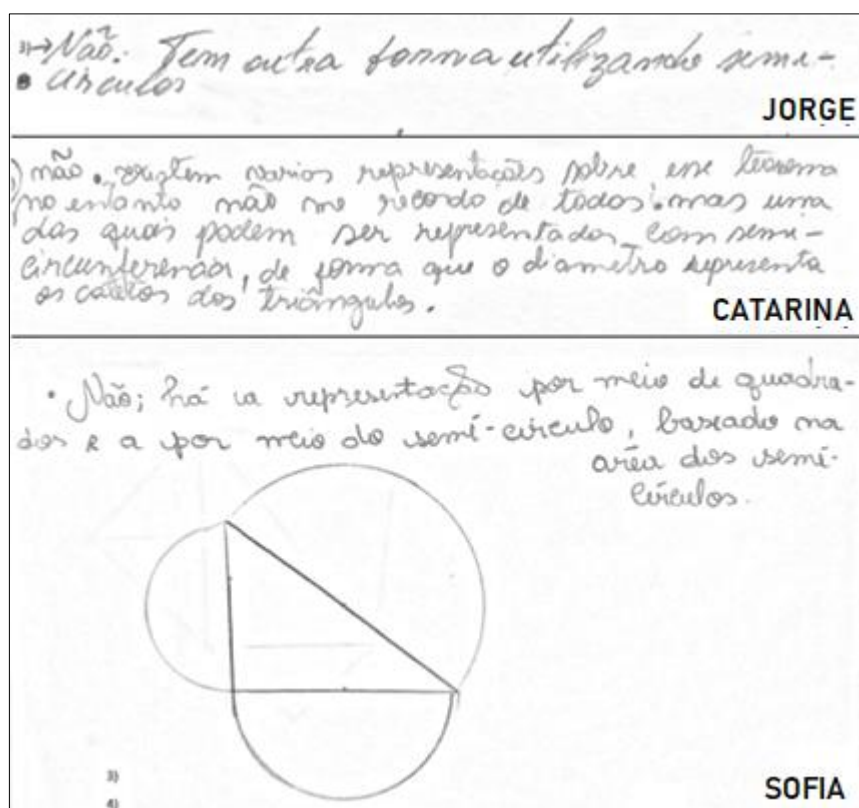 → Não. Tem outra forma utilizando semi-
círculos
JORGE
não. existem varios representações sobre esse teorema
no entanto não me recordo de todos. mas uma
das quais podem ser representados com semi-
circunferencias, de forma que o diametro representa
os catetos dos triângulos.
CATARINA
• Não; há a representação por meio de quadra-
dos e a por meio do semí-circulo, baseado na
aréa dos semí-
círculos.
3)
4)
SOFIA